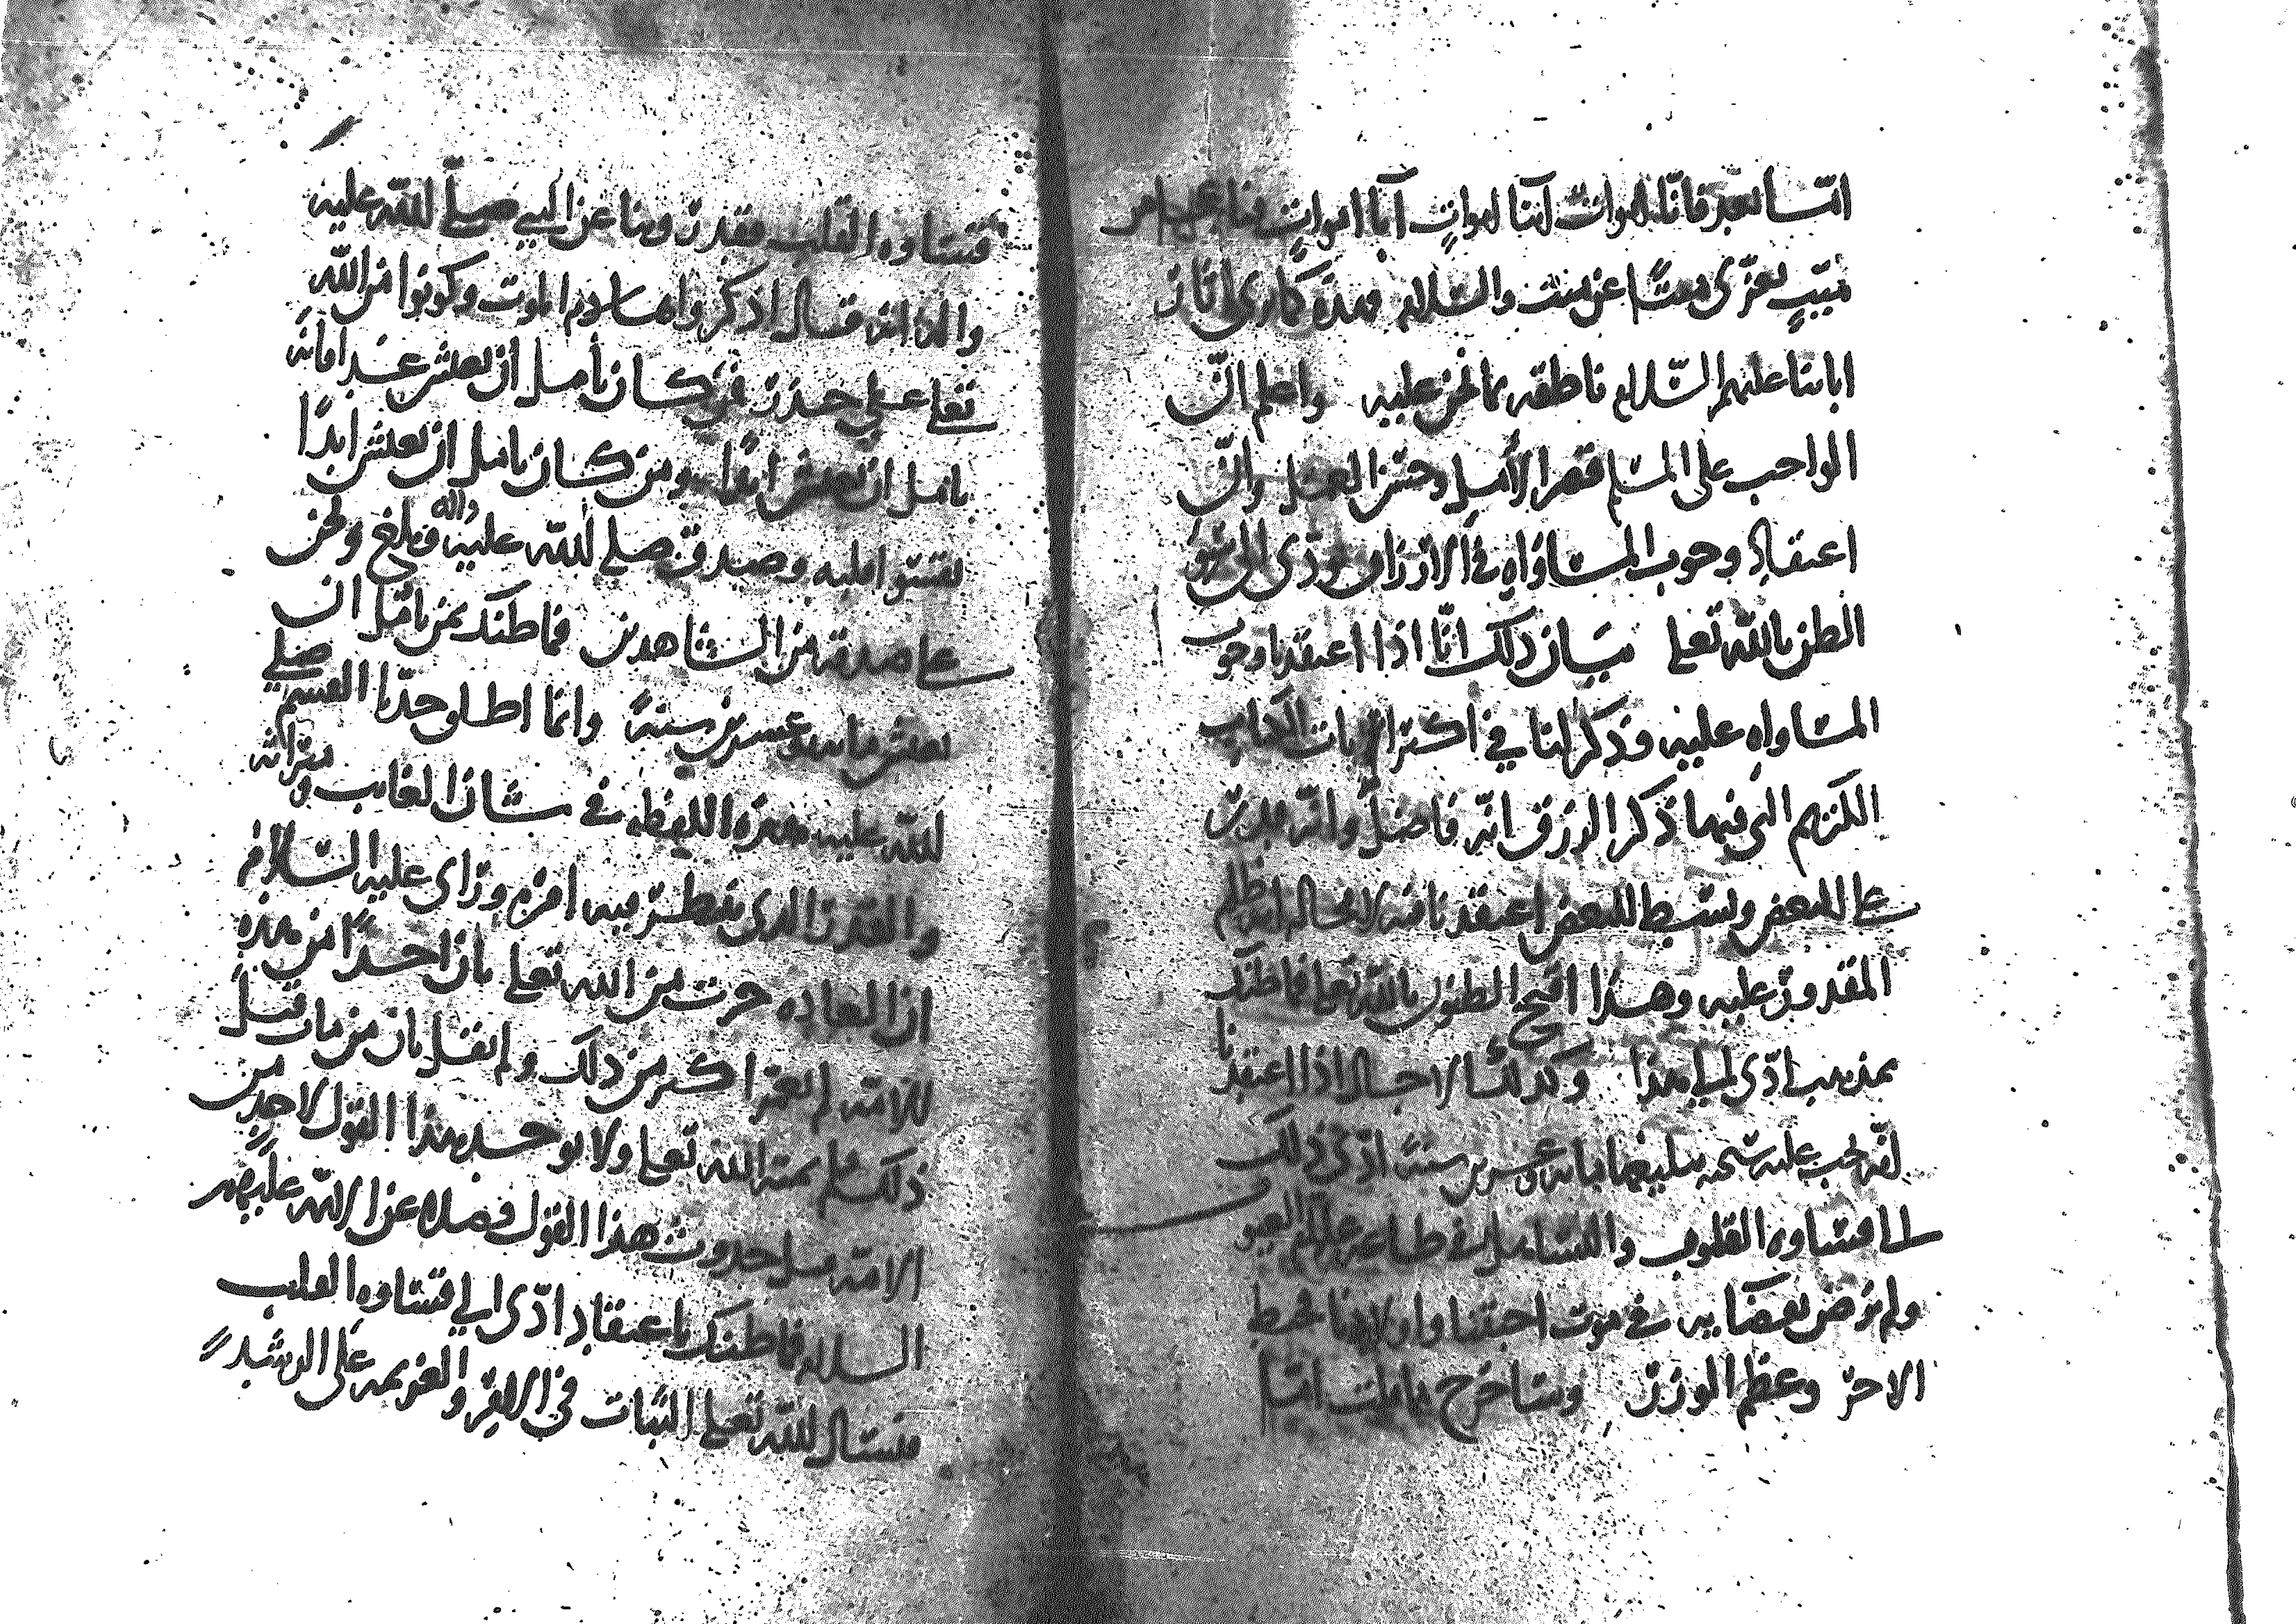 امّا بعد فانّا اموات ابنا اموات آبا اموات فيا عجبا من
ميّت يعزّي ميّتًا عن ميّت والسّلام فهذه كما ترى اثار
ابائنا عليهم السّلام ناطقه بما نحن عليه واعلم انّ
الواجب على المسلم قصر الأمل وحسن العمل وانّ
اعتقاد وجوب المساواه في الارزاق يؤدّى الى سو
الظن بالله تعلى بيان ذلك انّا اذا اعتقدنا وجوب
المساواه عليه وذكر لنا في اكثر ايات الكتاب
الكريم التي فيها ذكر الرزق انّه فاضل وانّه قدر
على البعض وبسط للبعض اعتقدنا فيه لا محاله انه ظلم
المقدور عليه وهذا اقبح الظنون بالله تعلى فما ظنك
بمذهب ادّى الى هذا وكذلك الاجال اذا اعتقدنا
انّه يجب عليه تبليغها مائه وعشرين سنة ادّى ذلك
الى قساوه القلوب والتساهل في طاعه علام الغيوب
ولم نرض بقضايه في موت احبتنا واولادنا فحبط
الاجر وعظم الوزر
قساوه القلب فقد روينا عن النبي صلّى اللّه عليه
واله انه قال اذكروا هادم الموت وكونوا من اللّه
تعلى على حذر فمن كان يأمل ان يعيش غدا فانه
يامل ان يعيش ابدًا ومن كان يامل ان يعيش ابدًا
يقسو قلبه وصدق صلى اللّه عليه واله وبلغ ونحن
على صدقه من الشاهدين فما ظنك بمن يامل ان
يعيش مائه وعشرين سنة وانما اطلق جدّنا القسم صلى
اللّه عليه بهذه اللفظه في شان الغايب
والقدر الذي ينتظر فيه امره وراى عليه السّلام
ان العاده جرت من الله تعلى بان احدًا من هذه
الامّه لم يعمّر اكثر من ذلك ولم يقل بان من مات قبل
ذلك فلم يمته الله تعلى ولا يوجد هذا القول لاحد من
الامّه قبل حدوث هذا القول فضلا عن ال اللّه عليهم
السلام فما ظنك باعتقاد ادّى الى قساوه القلب
فنسال اللّه تعلى الثبات في الامر والعزيمه على الرشد